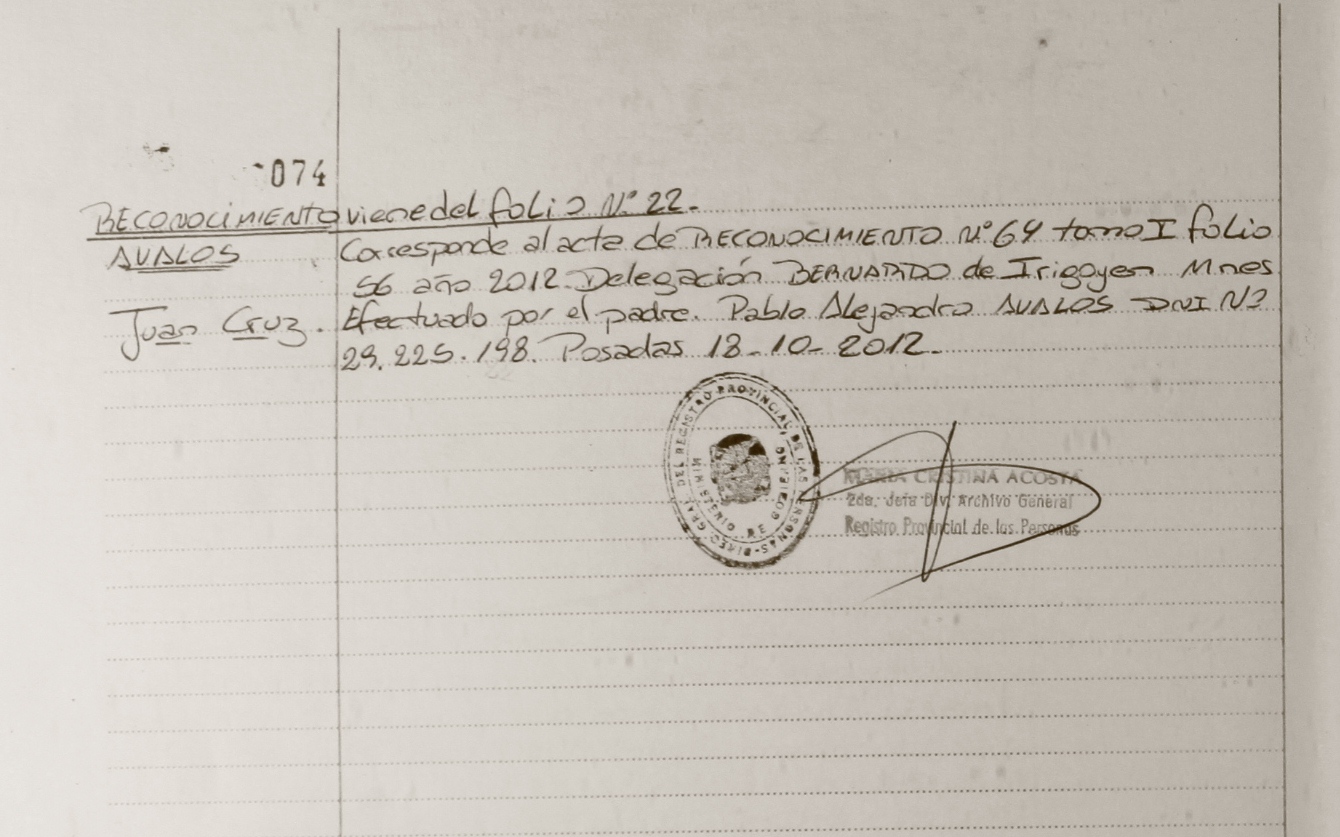 074
RECONOCIMIENTO viene del folio N° 22.-
AVALOS Corresponde al acta de RECONOCIMIENTO N° 64 tomo I folio
56 año 2012. Delegación BERNARDO de Irigoyen Mnes
Juan Cruz. Efectuado por el padre. Pablo Alejandro AVALOS DNI N°
29.225.198. Posadas 18-10-2012.
DIREC. GRAL. DEL REGISTRO PROVINCIAL DE LAS PERSONAS
MINISTERIO DE GOBIERNO
MARIA CRISTINA ACOSTA
2da. Jefa Div. Archivo General
Registro Provincial de las Personas